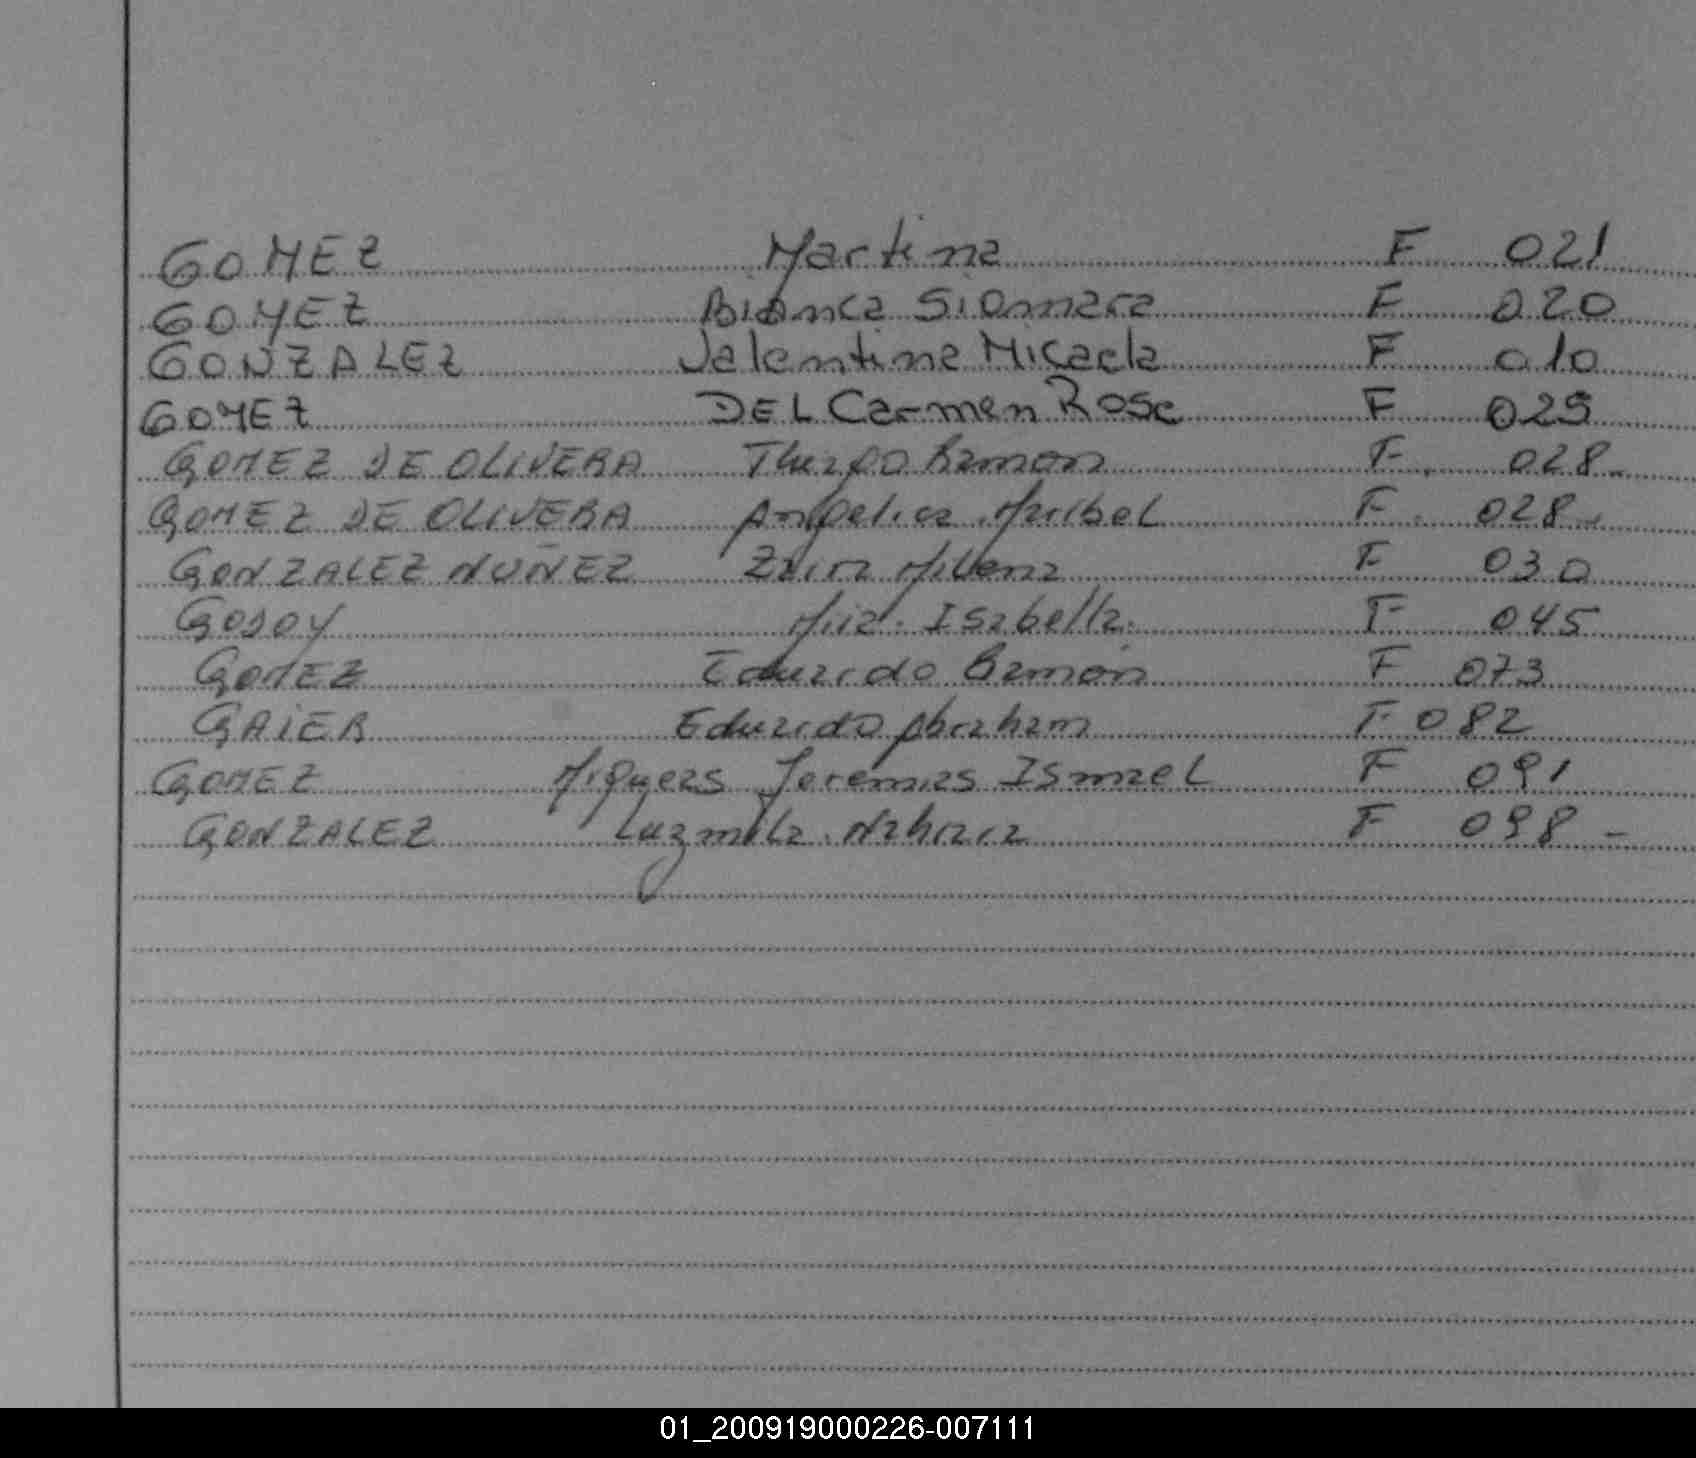 GOMEZ Martina F 021
GOMEZ Bianca Siomara F 020
GONZALEZ Valentina Micaela F 010
GOMEZ DEL Carmen Rosa F 025
GOMEZ DE OLIVERA Thiago Ramon F 028
GOMEZ DE OLIVERA Angelica Maribel F 028
GONZALEZ NUÑEZ Milena F 030
GODOY Mia Isabella F 045
GOMEZ Eduardo Ramón F 073
GAIER Eduardo Abraham F 082
GOMEZ Jeremias Ismael F 091
GONZALEZ Luzmila Nahiara F 098
01_200919000226-007111